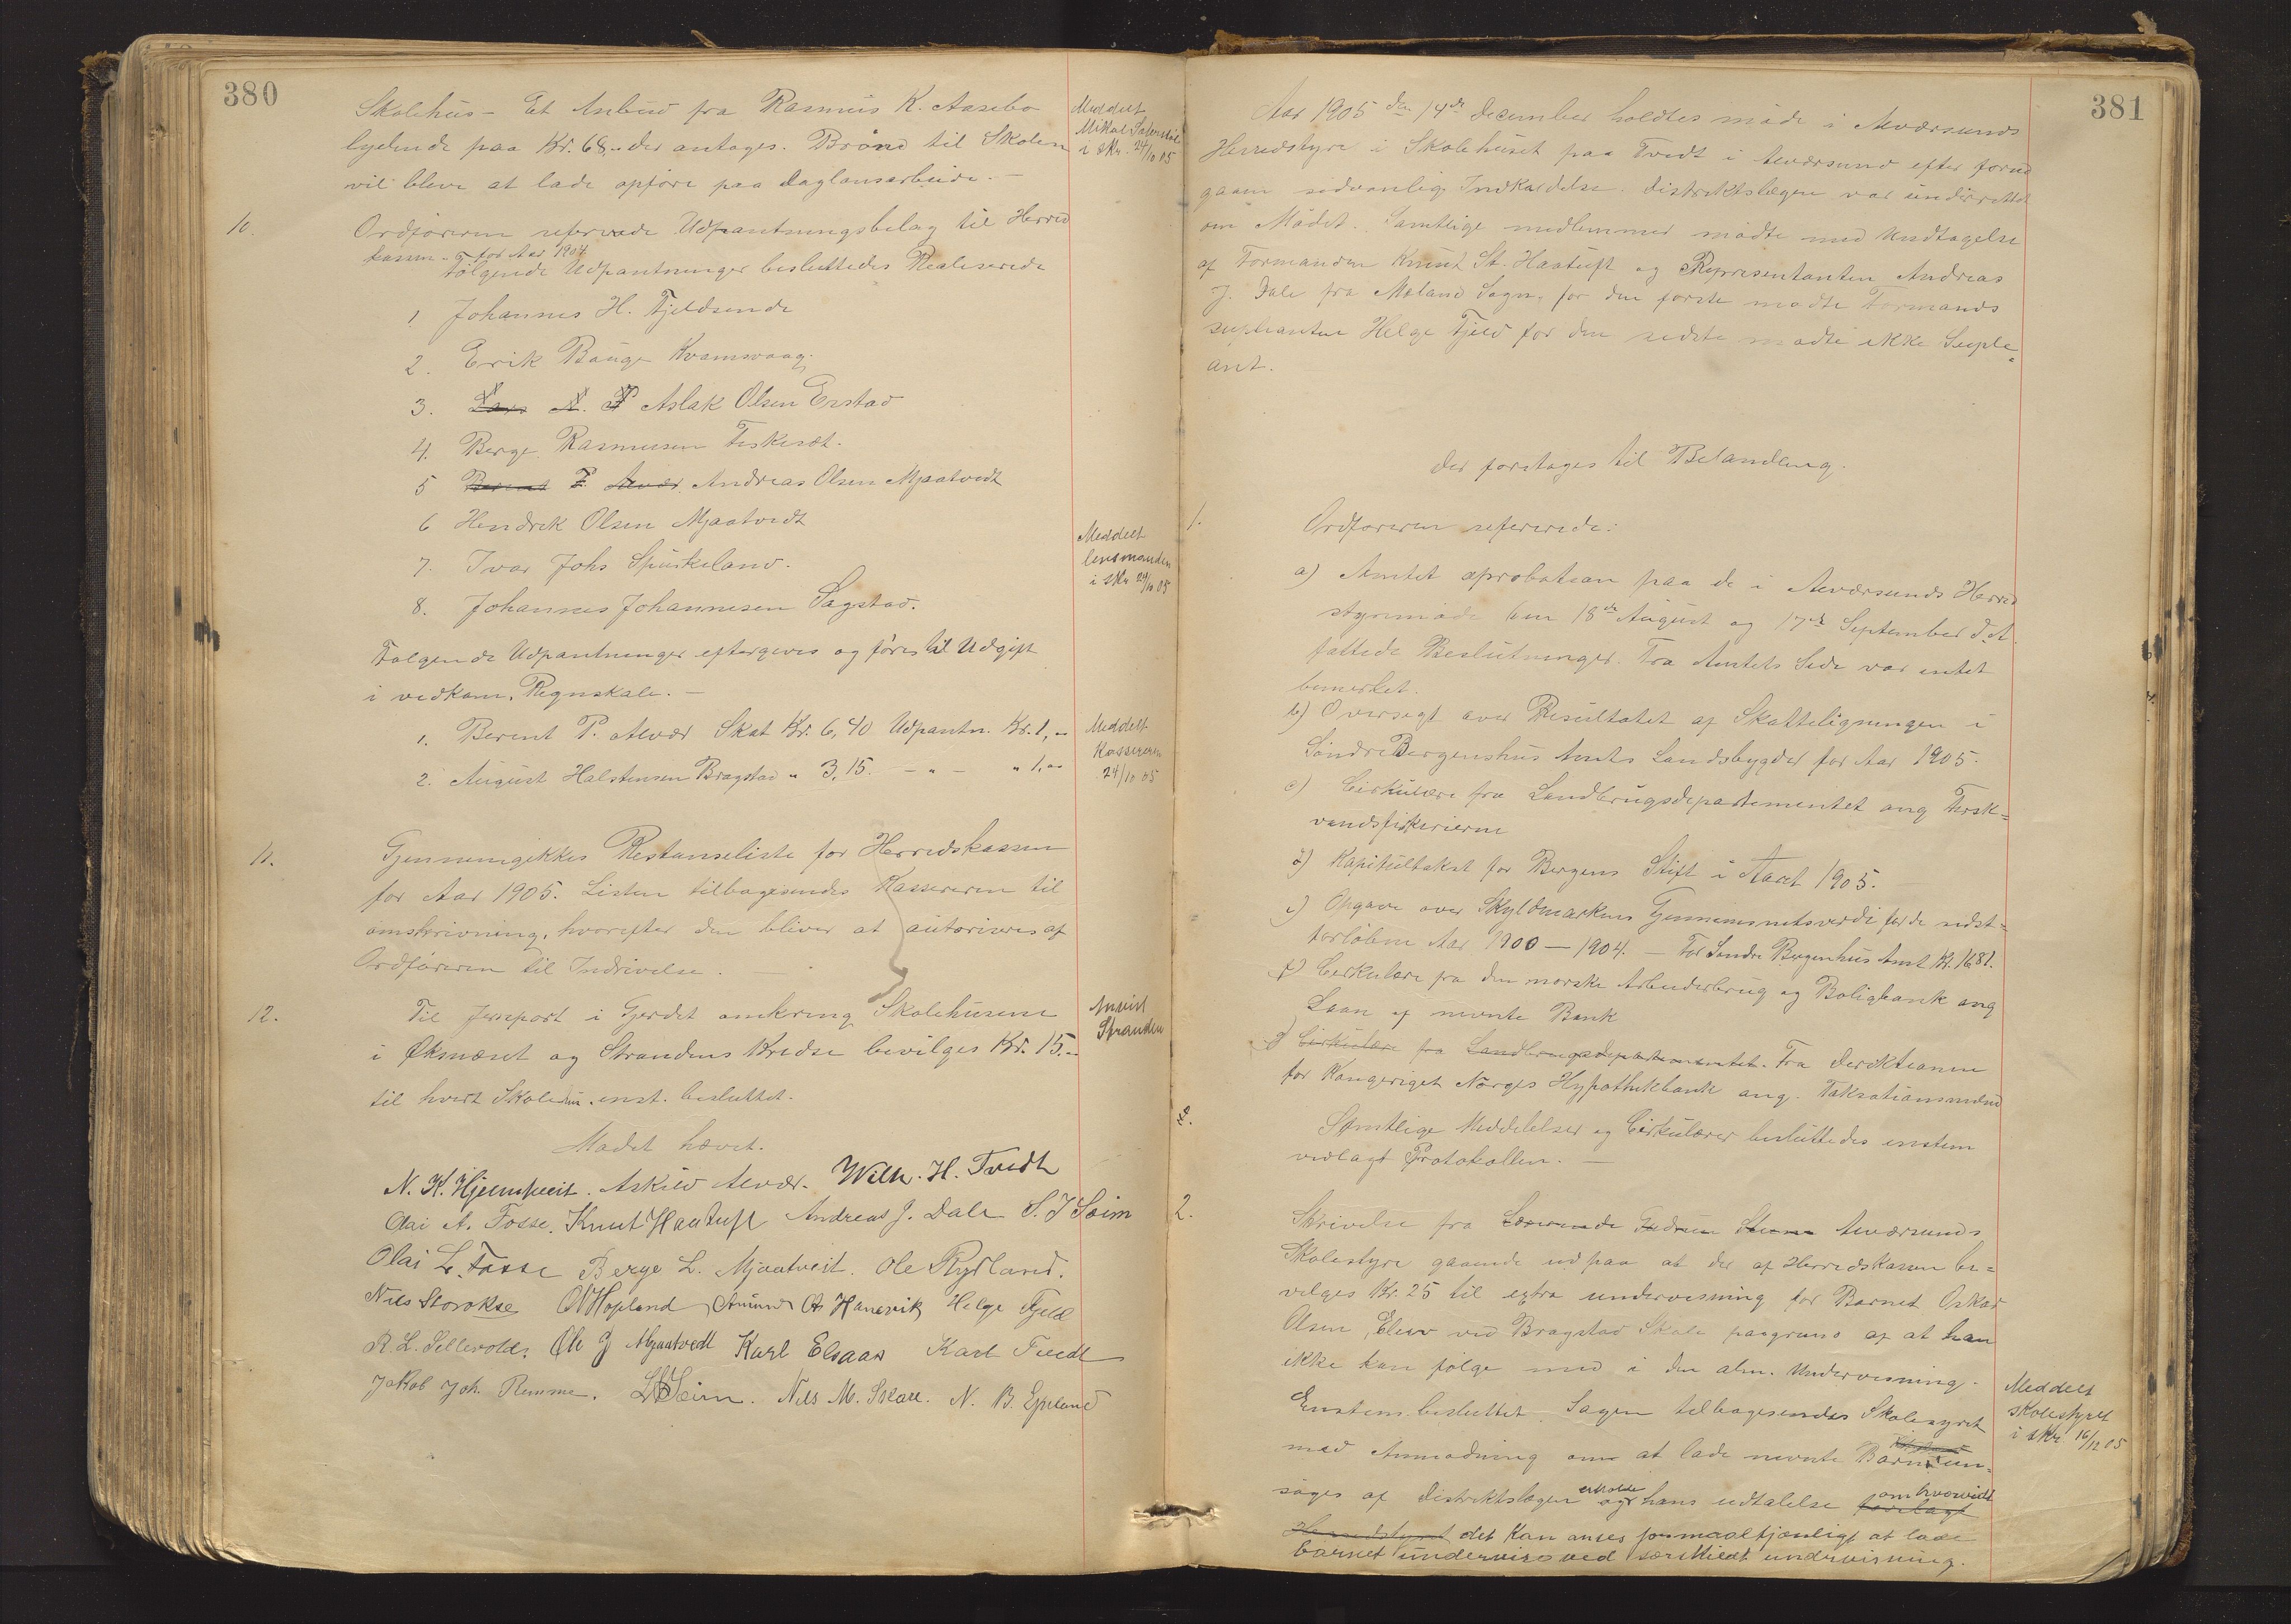 380
Skolehus - Et Anbud fra Rasmus K. Aasebø
lydende paa Kr. 68,- der antages. Brønd til Skolen
vil bleve at lade opføre paa Daglønsarbeide. -
Meddelt
Mikal
i Skr. 24/10 05
10.
Ordføreren refererede Udpantningsbelag til Herred
kassen - for Aar 1904
Følgende Udpantninger besluttedes Realiserede
1 Johannes H. Fjeldsende
2. Erik Bauge Kvamsvaag.
3. Lars N. P Aslak Olsen Erstad
4. Berge Rasmusen Fiskesæt.
5 Berent P. Alvær. Andreas Olsen Mjaatvedt
6 Hendrik Olsen Mjaatvedt
7. Ivar Johs Spurkeland.
8. Johannes Johannesen Sagstad.
Meddelt
lensmanden
i Skr 24/10 05
Følgende Udpantninger eftergives og føres til Udgift
i vedkom. Regnskale. -
1. Berent P. Alvær Skat Kr. 6,40 Udpantn. Kr. 1,-
2. August Halstensen Bragstad " 3,15. - " - " 1,00
Meddelt
Kassereren
24/10 05
11.
Gjennemgikkes Restanseliste for Herredskassen
for Aar 1905. Listen tilbagesendes Kassereren til
omskrivning, hvorefter den bliver at autoriseres af
Ordføreren til Indrivelse. -
12.
Til Jernport i Gjerdet omkring Skolehusene
i Øksnæset og Strandens Kredse bevilges Kr. 15.-
til hvert Skolehus. enst. besluttet.
Anvist
Stranden
Mødet hævet.
N. K. Hjelmtveit. Askild Alvær. Wilh. H. Tvedt
Olai A. Fosse. Knut Haatuft Andreas J. Dale S. J Seim
Olai L. Fosse Berge L. Mjaatveit. Ole Rydland.
Nils Storokse O Hopland Amund A Hanevik Helge Fjeld
R. L. Sellevold. Ole J Mjaatvedt Karl Elsaas Karl Tvedt
Jakob Joh. Remme. L Seim. Nils M. Skare. N. B. Espeland
381
Aar 1905 den 14de December holdtes møde i Alværsunds
Herredstyre i Skolehuset paa Tvedt i Alværsund efter forud
gaaen sedvanlig Indkaldelse. Distriktslægen var underrettet
om Mødet. Samtlige medlemmer mødte med Undtagelse
af Formanden Knut St. Haatuft og Representanten Andreas
J. Dale fra Meland Sogn, for den første mødte Formands
supleanten Helge Fjeld for den sidste mødte ikke Suple=
ant.
Der foretages til Behandling.
1.
Ordføreren refererede:
a) Amtet aprobation paa de i Alværsunds Herred
styremøde den 18de August og 17de September d. A.
fattede Beslutninger. Fra Amtets Side var intet
bemerket.
b) Oversigt over Resultatet af Skatteligningen i
Søndre Bergenshus Amts Landsbygder for Aar 1905.
c) Cirkulære fra Landbrugsdepartementet ang Fersk=
vandsfiskerierne
d) Kapitultakst for Bergens Stift i Aaret 1905. -
e) Opgave over Skyldmarkens Gjennemsnitsverdi for de sidst=
forløbne Aar 1900 - 1904. - For Søndre Bergenhus Amt Kr. 1681.
f) Cerkulære fra den norske Arbeiderbrug og Boligbank ang
Laan af nevnte Bank
g) Cirkulære fra Landbrugsdepartementet. Fra Derektionen
for Kongeriget Norges Hypothekbank ang. Taksationsmænd
Samtlige Meddelelser og Cirkulærer besluttedes enstem
vedlagt Protokollen. -
2.
Skrivelse fra Lærerinde Gudrun Alværsunds
Skolestyre gaaende ud paa at der af Herredskassen be=
velges Kr. 25 til extra undervesning for Barnet Oskar
Olsen, Elev ved Bragstad Skole paagrund af at han
ikke kan følge med i den alm. Undervesning.
Enstem. besluttet. Sagen telbagesendes Skolestyret
med Anmodning om at lade nevnte Barn un-
søges af distriktslægen erholde og hans udtalelse forelagt om hvorvidt
Herredstyret det kan anses formaaltjenligt at lade
barnet undervise ved særskildt undervisning.
Meddelt
skolestyret
i Skr. 16/12 05